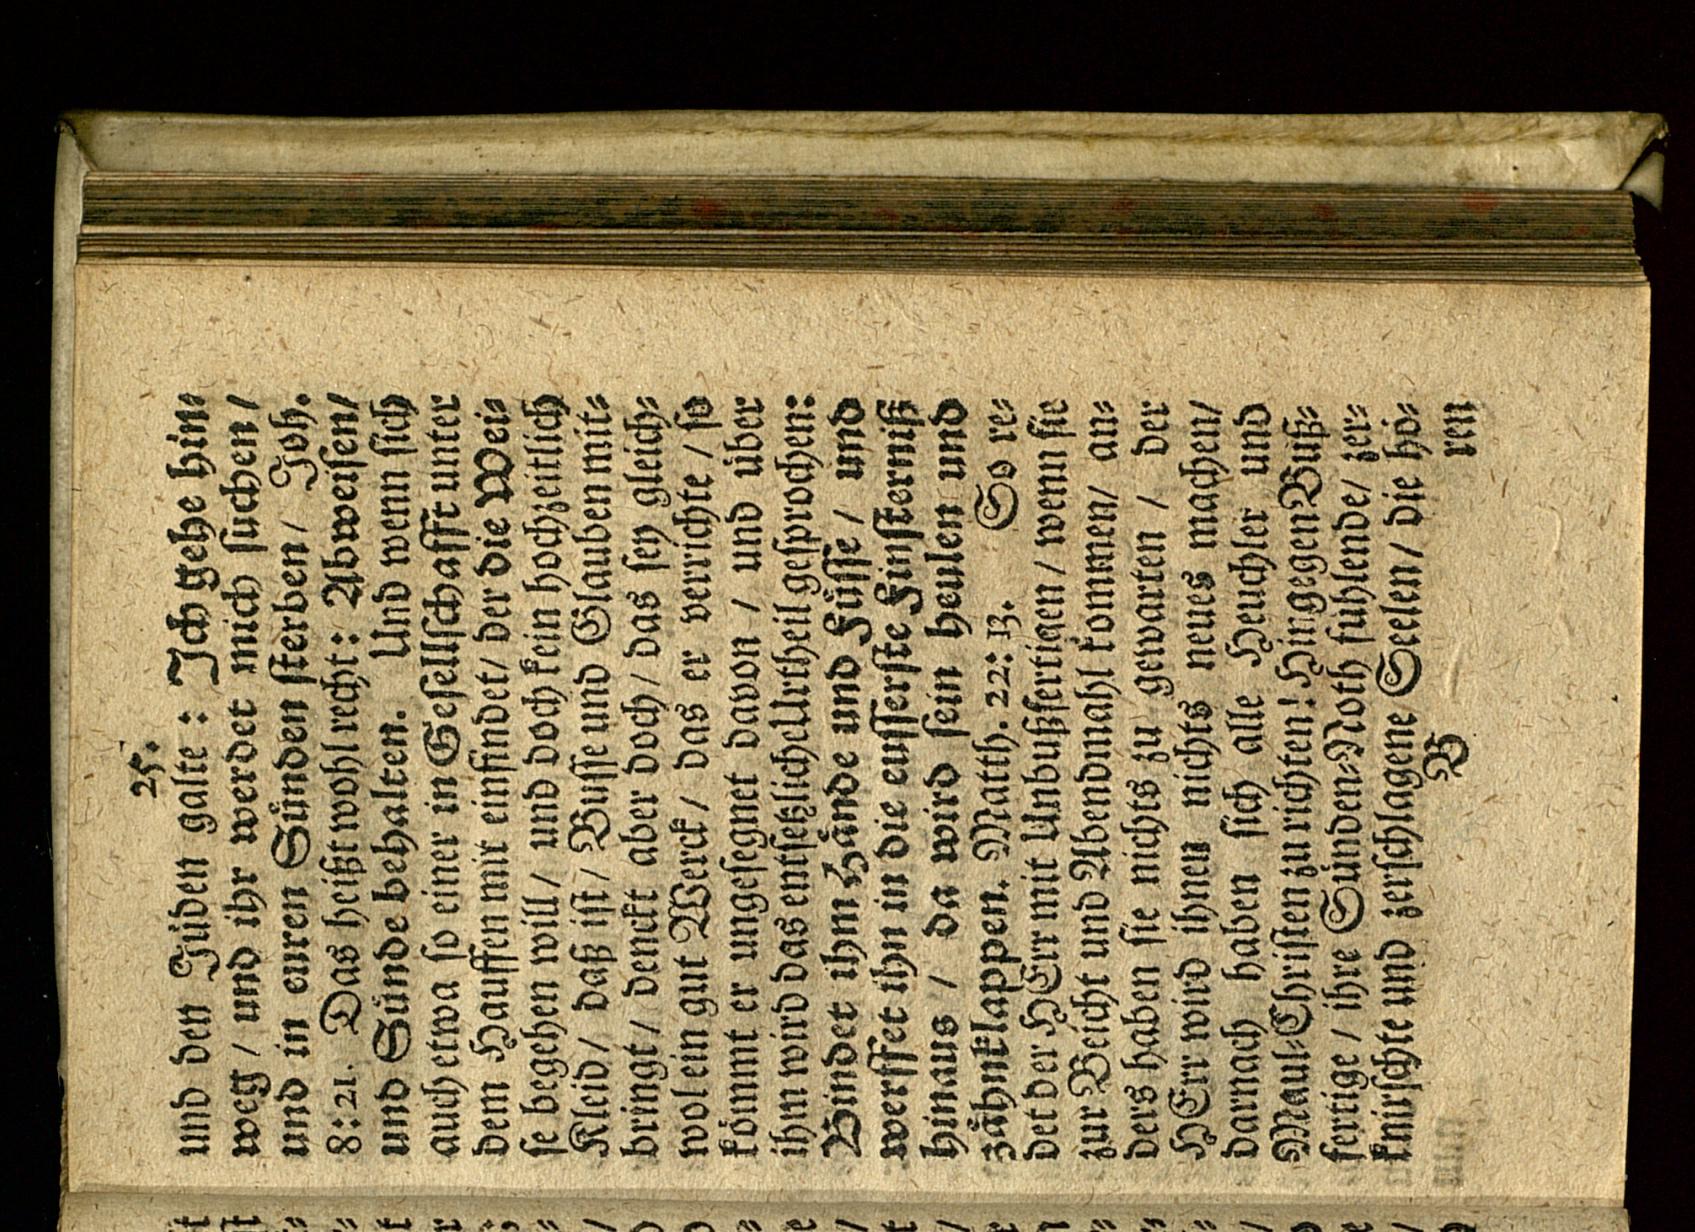 25.
und den Jüden galte : Ich gehe hin⸗
weg / und ihr werdet mich suchen /
und in euren Sünden sterben / Joh.
8: 21. Das heißt wohl recht: Abweisen/
und Sünde behalten. Und wenn sich
auch etwa so einer in Gesellschafft unter
dem Hauffen mit einfindet/ der die Wei⸗
se begehen will / und doch kein hochzeitlich
Kleid / daß ist / Busse und Glauben mit⸗
bringt / denckt aber doch / das sey gleich⸗
wol ein gut Werck / das er verrichte / so
kömmt er ungesegnet davon / und über
ihn wird das entsetzliche Urtheil gesprochen:
Bindet ihm Hände und Füsse / und
werffet ihn in die eusserste Finsterniß
hinaus / da wird sein heulen und
zähnklappen. Matth. 22: 13. So re⸗
det der HErr mit Unbußfertigen / wenn sie
zur Beicht und Abendmahl kommen/ an⸗
ders haben sie nichts zu gewarten / der
HErr wird ihnen nichts neues machen/
darnach haben sich alle Heuchler und
Maul⸗Christen zu richten! Hingegen Buß⸗
fertige / ihre Sünden⸗Noth fühlende/ zer⸗
knirschte und zerschlagene Seelen / die hö⸗
B ren